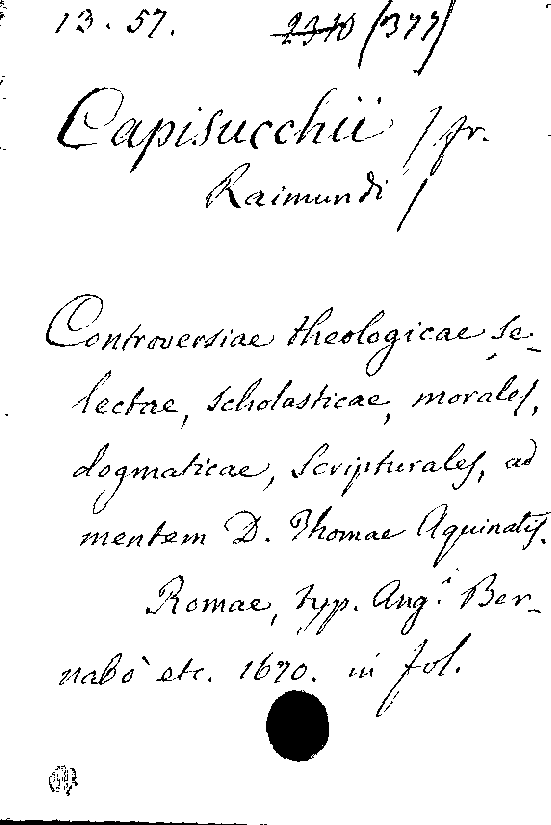 13. 57. 2310 (377)
Capisucchii / fr.
Raimundi /
Controversiae theologicae se-
lectae, scholasticae, morales,
dogmaticae, Scripturales, ad
mentem D. Thomae Aquinatis.
Romae, typ. Ang.i Ber-
nabò etc. 1670. in fol.